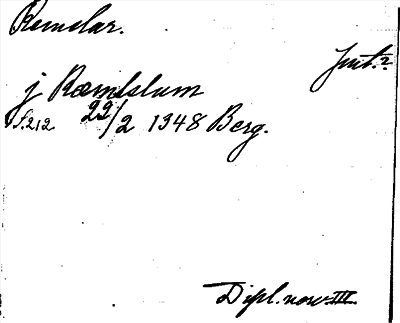 Remslar.
Jmt.?
j Ræmslum
S.212 22/2 1348 Berg.
Dipl. norv. III